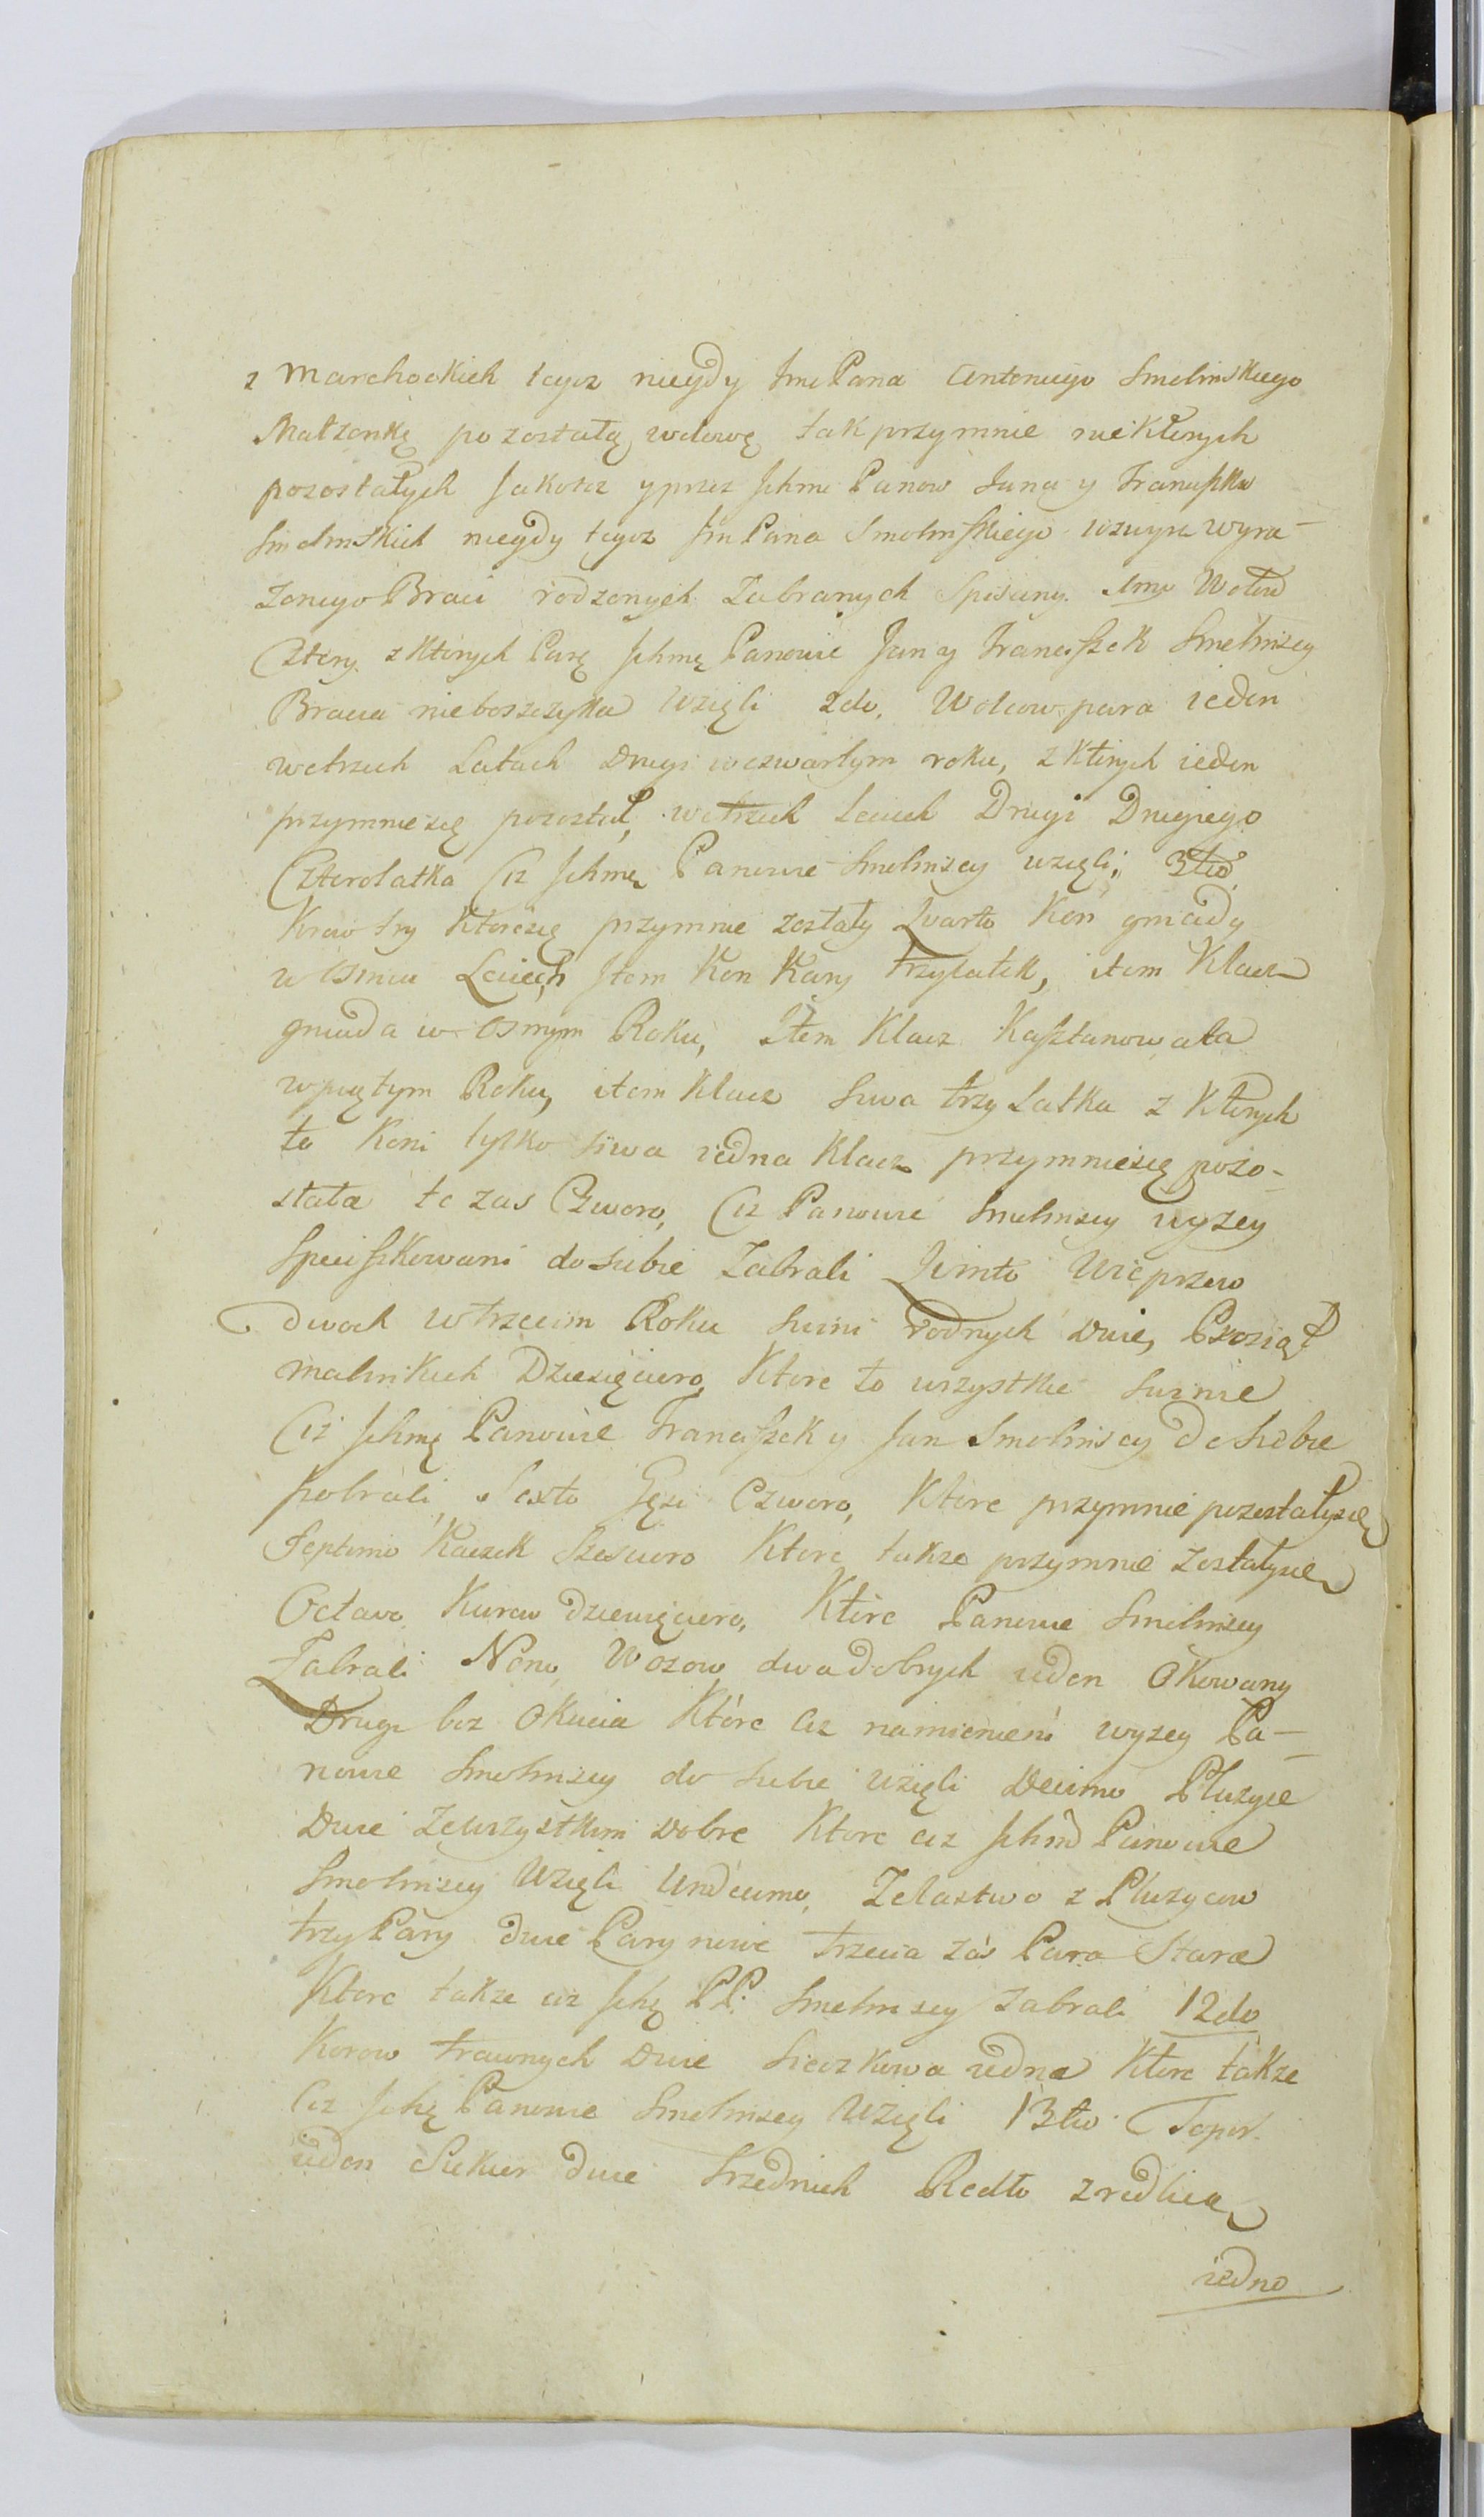 z Marchockich tegoz niegdy JmcPana Antoniego Smolinskiego
Małzonkę pozostałą wdowę tak przymnie niektorych
pozostałych jakotez yprzez Jchmc Panow Jana y Franciszka
Smolinskich niegdy tegoz JmPana Smolinskiego wyra-
zonego Braci rodzonych Zabranych Spisany. Imo Wołow
Cztery z ktorych Parę Jchmc Panowie Jan y Franciszek Smolinscy
Bracia nieboszczyka Wzięli 2do. Wolcow para ieden
wetrzech Latach Drugi wczwartym roku, z ktorych ieden
przymnie się pozostał, wetrzech Leciech Drugi Drugiego
Czterolatka Ciz Jchmc Panowie Smolinscy wzięli, 3tio
Krow try ktoresię przymnie zostały Quarto Kon gniady
w osmiu Leciech Jtem Kon Kary trzylatek, item Klacz
gniada w osmym Roku, Item Klacz Kasztanowata
wpiętym Roku, item Klacz Siwa trzy Latka z ktorych
to Koni tylko siwa iedna Klacz przymniesię pozo-
stała te zas Czworo, Ciz Panowie Smolinscy wyzey
Specifikowani dosiebie Zabrali Qinto Wieprzow
dwoch wtrzecim Roku Swini rodnych Dwie, Prosiąt
malinkich Dziesięcioro, Ktore to wszystkie Swinie
Ciz Jchmc Panowie Franciszek y Jan Smolinscy do Siebie
pobrali, Sexto Gęsi Czworo, Ktore przymnie pozostałysię
Septimo Kaczek Szescioro Ktore takze przymnie Zostałysię
Octavo Kurow dziewięcioro, Które Panowie Smolinscy
Zabrali Nono Wozow dwa dobrych ieden Okowany
Drugi bez Okucia Które ciz namienieni wyzey Pa-
nowie Smolinscy do Siebie wzięli Decimo Płuzyce
Dwie Zewszystkim dobre Ktore ciz Jchmc Panowie
Smolinscy Wzięli Undecimo, Zelaztwo z Płuzycow
trzy Pary dwie Pary nowe trzecia zás Para Stara
Ktore takze ciz Jchc PP. Smolinscy Zabrali 12do
Korow trawnych Dwie Sieczkowa iedna Ktore takze
Ciz Jchc Panowie Smolinscy Wzięli 13tio Topor
ieden Siekier dwie Srzednich Redło zredlicą
iedno